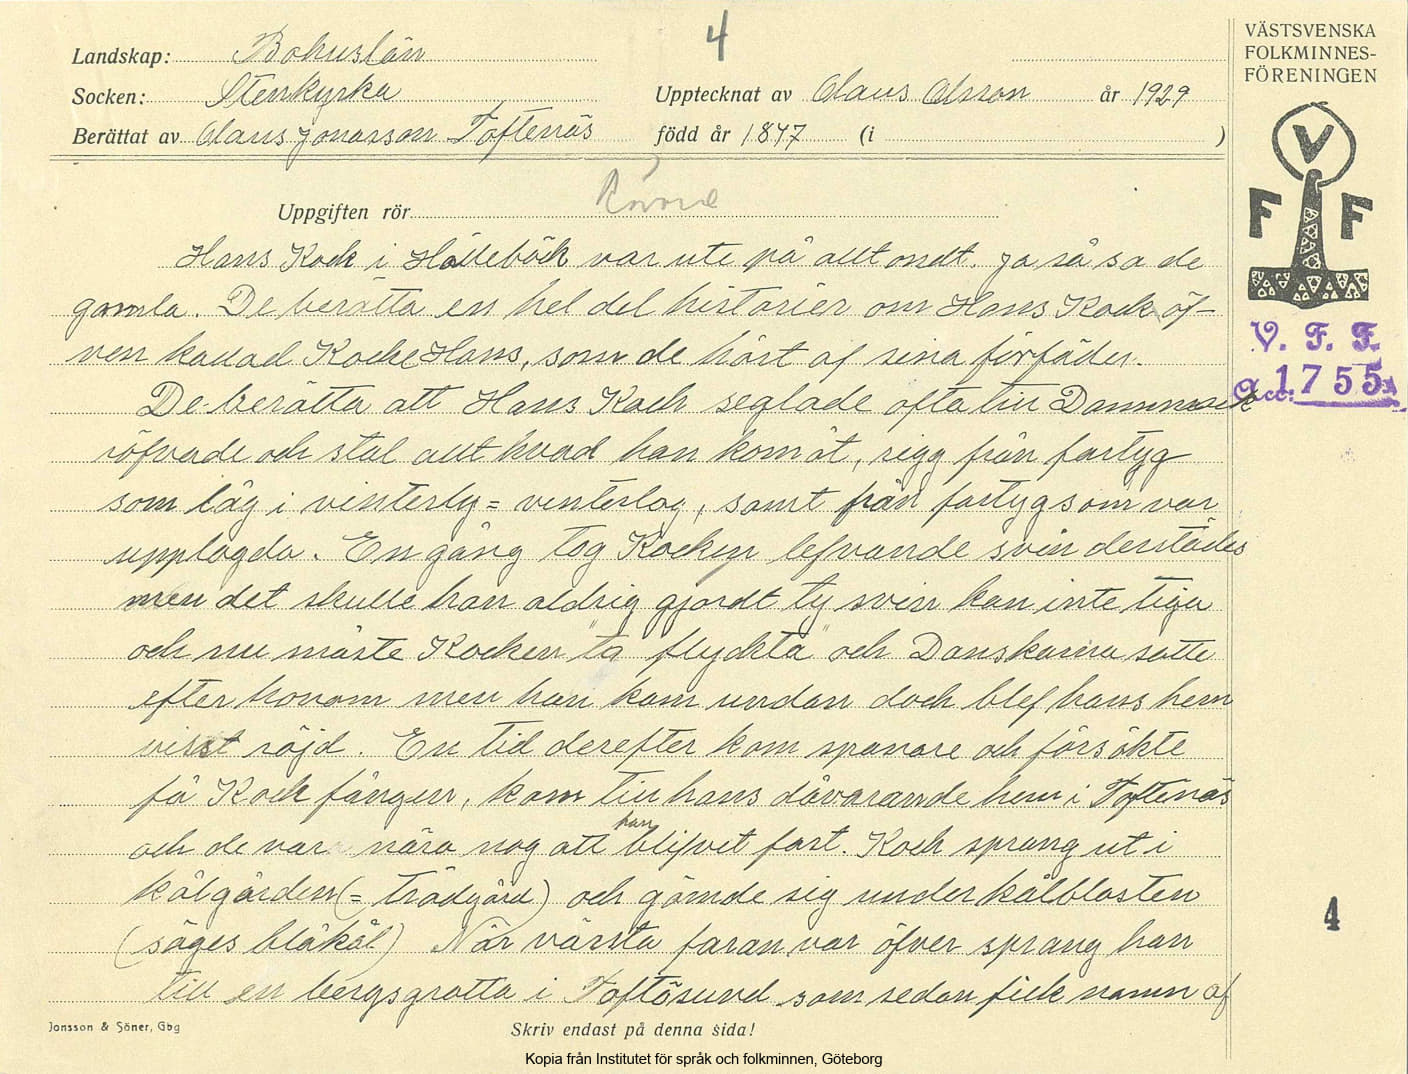 4
Landskap: Bohuslän
Socken: Stenkyrka
Upptecknat av Claus Olsson år 1929
Berättat av Claus Jonasson Toftenäs
född år 1847 (i )
VÄSTSVENSKA
FOLKMINNES-
FÖRENINGEN
V
F F
V. F. F.
Acc. 1755
Uppgiften rör
Hans Kock i Hälleböck var ute på allt ondt. Ja så sa de
gamla. De berätta en hel del historier om Hans Kock öf-
ven kallad Kocke Hans, som de hört af sina förfäder.
De berätta att Hans Kock seglade ofta till Danmark
röfvade och stal allt hvad han kom åt, rigg från fartyg
som låg i vinterly = vinterlag, samt från fartyg som var
upplagda. En gång tog Kocken lefvande svin derstädes
men det skulle han aldrig gjordt ty svin kan inte tiga
och nu måste Kocken "ta flyckta" och Danskarna satte
efter honom men han kom undan doch blef hans hem
visst röjd. En tid derefter kom spanare och försökte
få Kock fången, kom till hans dåvarande hem i Toftenäs
och de var nära nog att han blifvet fast. Kock sprang ut i
kålgården (= trädgård) och gömde sig under kålblasten
(säges blåkål) När värsta faran var öfver sprang han
till en bergsgrotta i Toftösund som sedan fick namn af
4
Jonsson & Söner, Gbg
Skriv endast på denna sida!
Kopia från Institutet för språk och folkminnen, Göteborg